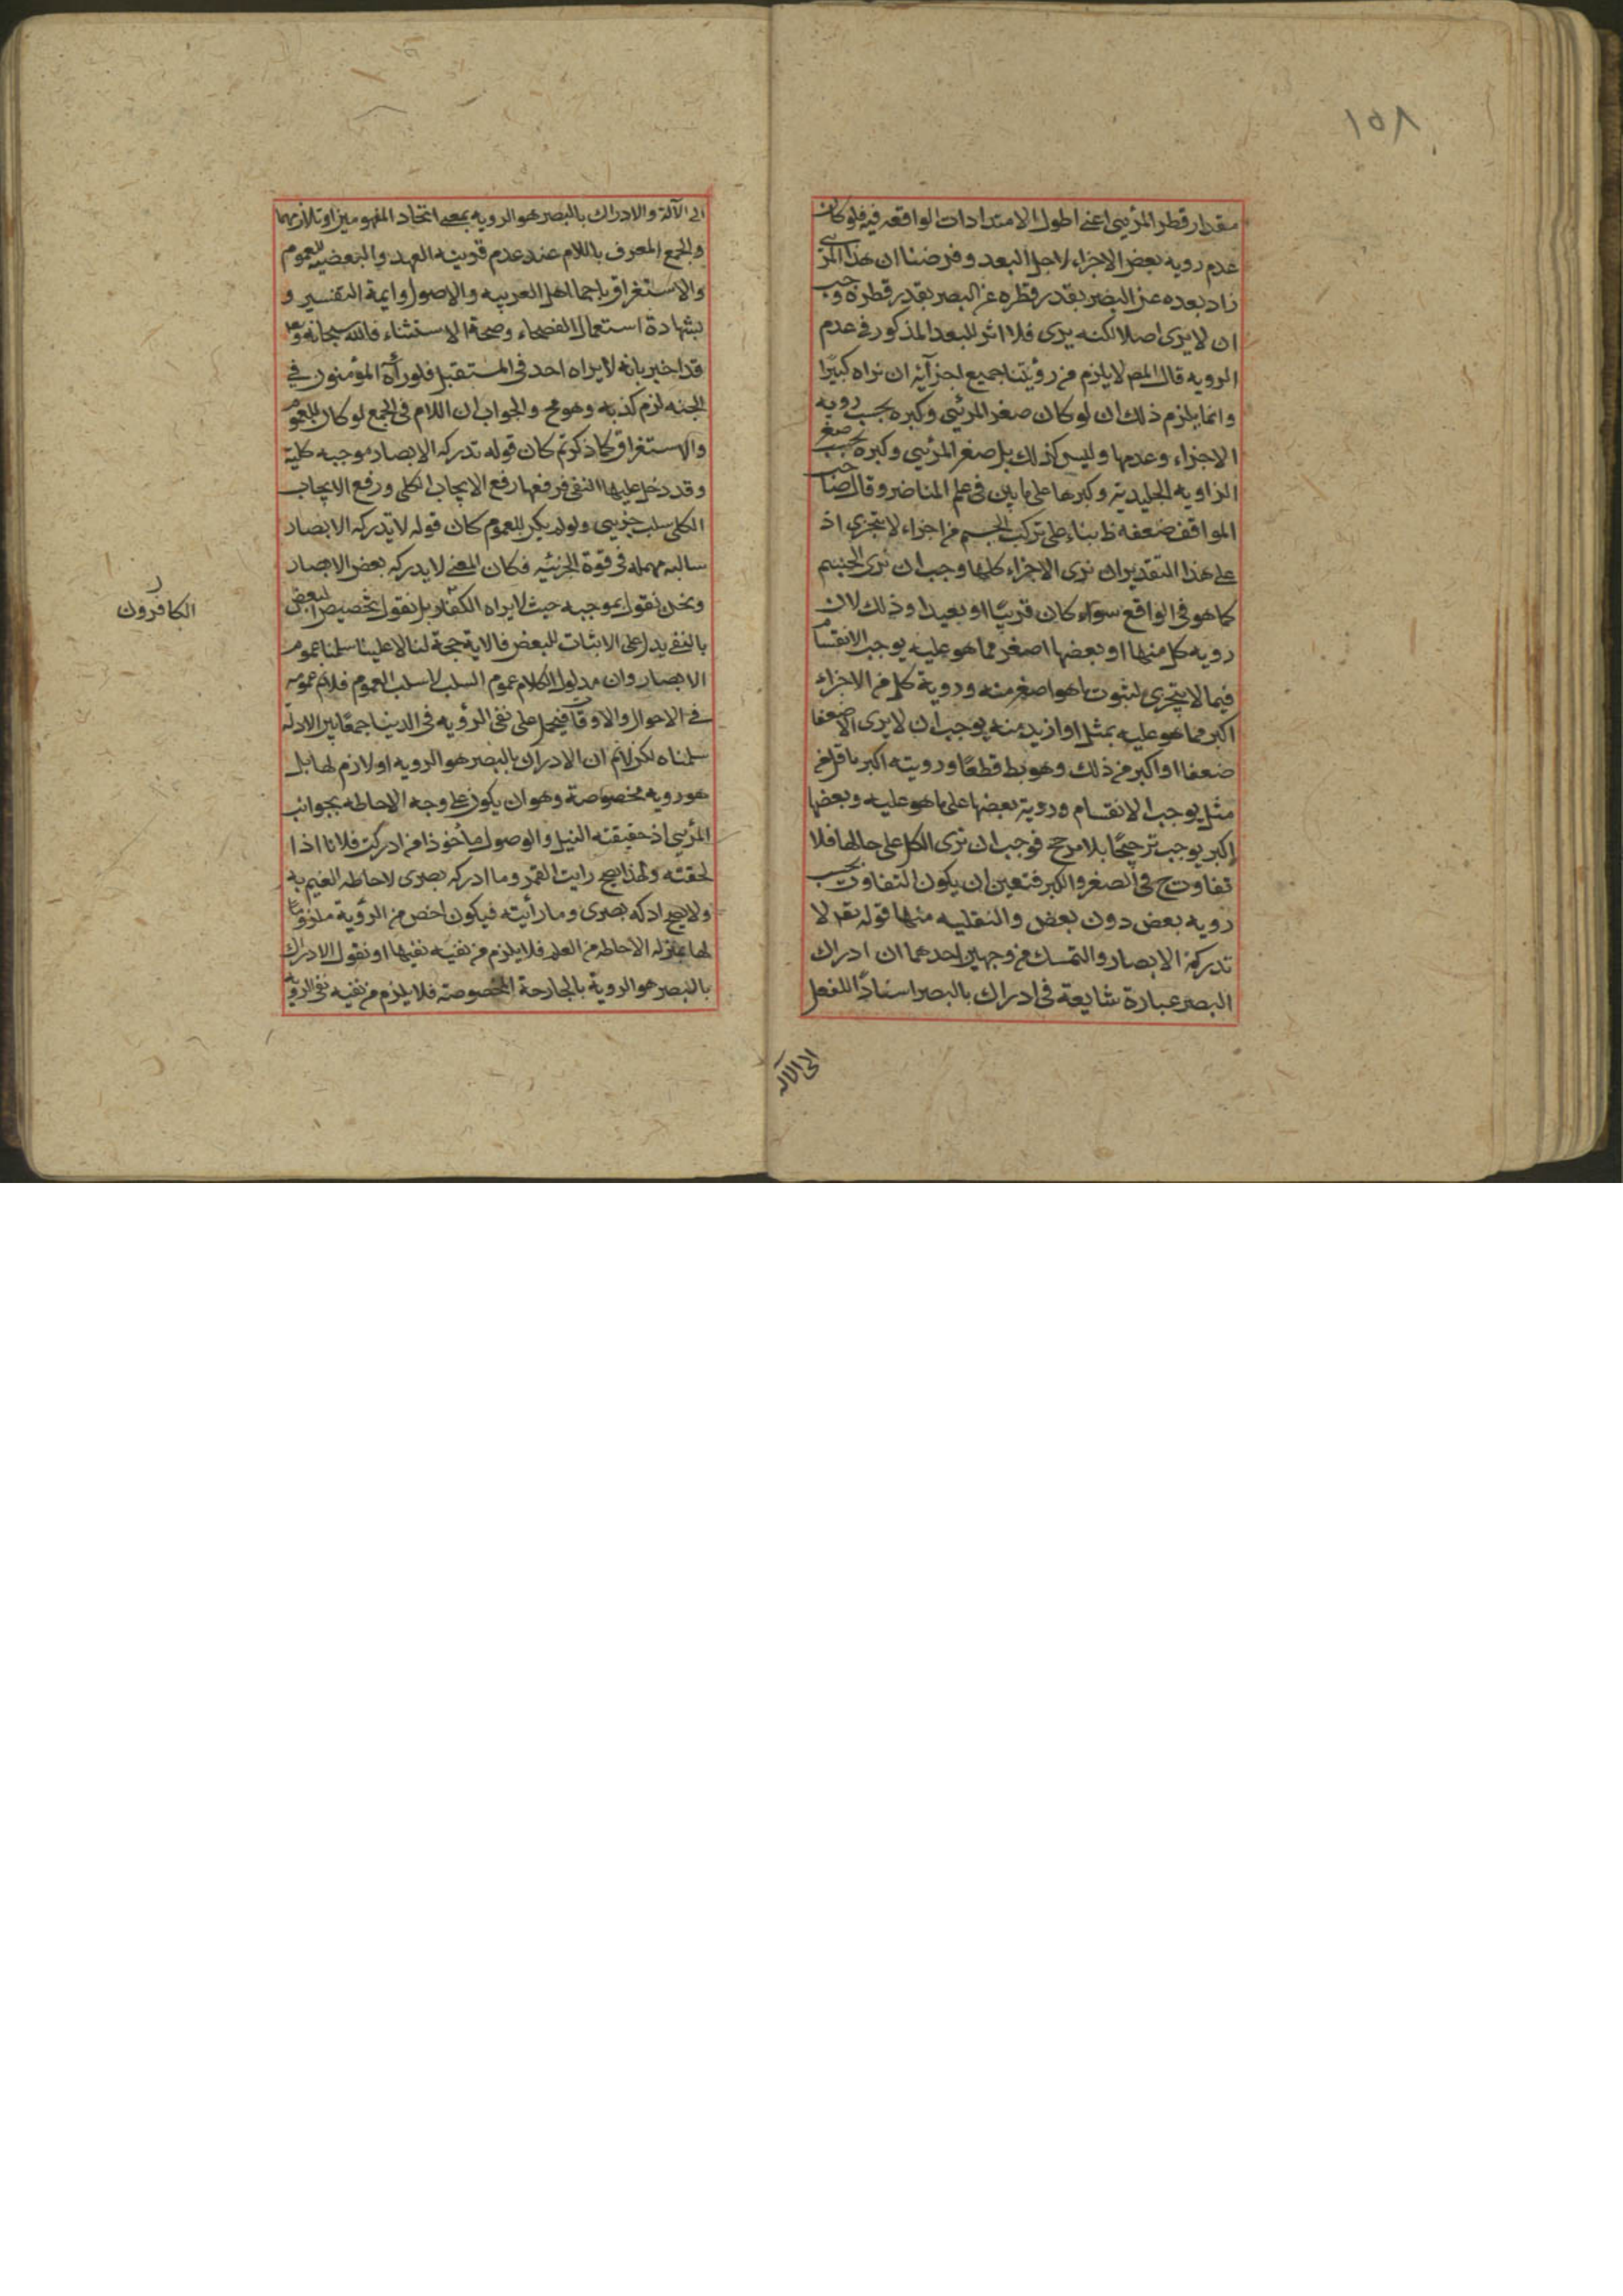 ١٥٨
مقدار قطر المرئيى اعنى اطول الامتدادات الواقعه فيه فلو كان
عدم رويه بعض الاجزاء لاجل البعد وفرضنا ان هذا المرئى
زاد بعده عن البصر بقدر قطره عن البصر بقدر قطره وجب
ان لا يرى اصلا لكنه يرى فلا اثر للبعد المذكور فى عدم
الرويه قال المص لا يلزم من رؤيتنا جميع اجزآئه ان نراه كبيرًا
وانما يلزم ذلك ان لو كان صغر المرئى وكبره بحسب رويه
الاجزاء وعدمها وليس كذلك بل صغر المرئيى وكبره بحسب صغر
الزاويه الجليديه وكبرها على ما بين فى علم المناضر وقال صاحب
المواقف ضعفه ظ بناء على تركب الجسم من اجزاء لا يتجزى اذ
على هذا التقدير ان نرى الاجزاء كلها وجب ان نرى الجسم
كما هو فى الواقع سوآء كان قريبًا او بعيدا وذلك لان
رويه كل منها او بعضها اصغر مما هو عليه يوجب الانقسام
فيما لا يتجزى لثبوت ما هو اصغر منه ورويه كل من الاجزاء
اكبر مما هو عليه بمثل او ازيد منه يوجب ان لا يرى الا ضعفا
ضعفا او اكبر من ذلك وهو بط قطعًا ورويته اكبر باقل من
مثل يوجب الانقسام ورويه بعضها على ما هو عليه وبعضها
اكبر يوجب ترجيحًا بلا مرجح فوجب ان نرى الكل على حالها فلا
تفاوت ح فى الصغر والكبر فتعين ان يكون التفاوت بحسب
رويه بعض دون بعض والنقليه منها قوله تعر لا
تدركه الابصار والتمسك من وجهين احدهما ان ادراك
البصر عبارة شايعة فى ادراك بالبصر اسنادًا للفعل
الى الآله
الى الآلة والادراك بالبصر هو الرويه بمعنى اتحاد المفهومين او تلازمهما
والجمع المعرف باللام عند عدم قرينه العهد والبعضيه للعموم
والاستغراق باجماع اهل العربيه والاصول وايمة التفسير و
بشهادة استعمال الفصحاء وصحة الاستثناء فالله سبحانه وتع
قد اخبر بانه لا يراه احد فى المستقبل فلو رآه المؤمنون فى
الجنه لزم كذبه وهو مح والجواب ان اللام فى الجمع لو كان للعموم
والاستغراق كما ذكرتم كان قوله تدركه الابصار موجبه كلية
وقد دخل عليها النفى فرفعها رفع الايجاب الكلى ورفع الايجاب
الكلى سلب جزيى ولو لم يكن للعموم كان قوله لا تدركه الابصار
سالبه مهمله فى قوة الجزئيه فكان المعنى لا يدركه بعض الابصار
ونحن نقول بموجبه حيث لا يراه الكفار بل نقول تخصيص البعض
بالنفى يدل على الاثبات للبعض فالاية حجة لنا لا علينا سلمنا عموم
الابصار وان مدلول الكلام عموم السلب لا سلب العموم فلانم عمومه
فى الاحوال والاوقات فيحمل على نفى الرؤيه فى الدنيا جمعًا بين الادله
سلمناه لكن لانم ان الادراك بالبصر هو الرويه او لازم لها بل
هو رويه مخصوصة وهو ان يكون على وجه الاحاطه بجوانب
المرئيى اذ حقيقته النيل والوصول مأخوذا من ادركت فلانا اذا
لحقته ولهذا يصح رايت القمر وما ادركه بصرى لاحاطه الغيم به
ولا يصح ادركه بصرى وما رأيته فيكون اخص من الرؤية ملزوما
لها بمنزله الاحاطه من العلم فلا يلزم من نفيه نفيها او نقول الادراك
بالبصر هو الروية بالجارحة المخصوصه فلا يلزم من نفيه نفى الرويه
ر
الكافرون